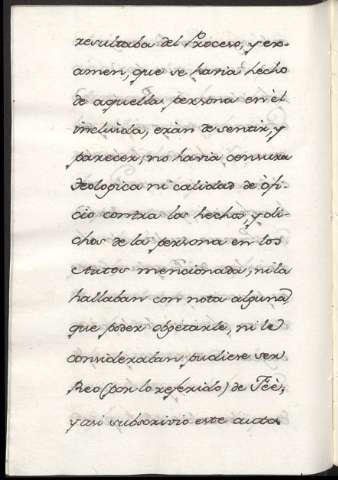 resultaba del Proceso, y ex-
amen, que se havia hecho
de aquella persona en èl
incluida, eran de sentir, y
parecer, no havia censura
Teologica ni calidad de ofi-
cio contra los hechos, y di-
chos de la persona en los
Autos mencionada, ni la
hallaban con nota alguna
que poder objetarle, ni le
consideraban pudiese ser
Reo (por lo referido) de Feè,
y asi subscrivio este auto